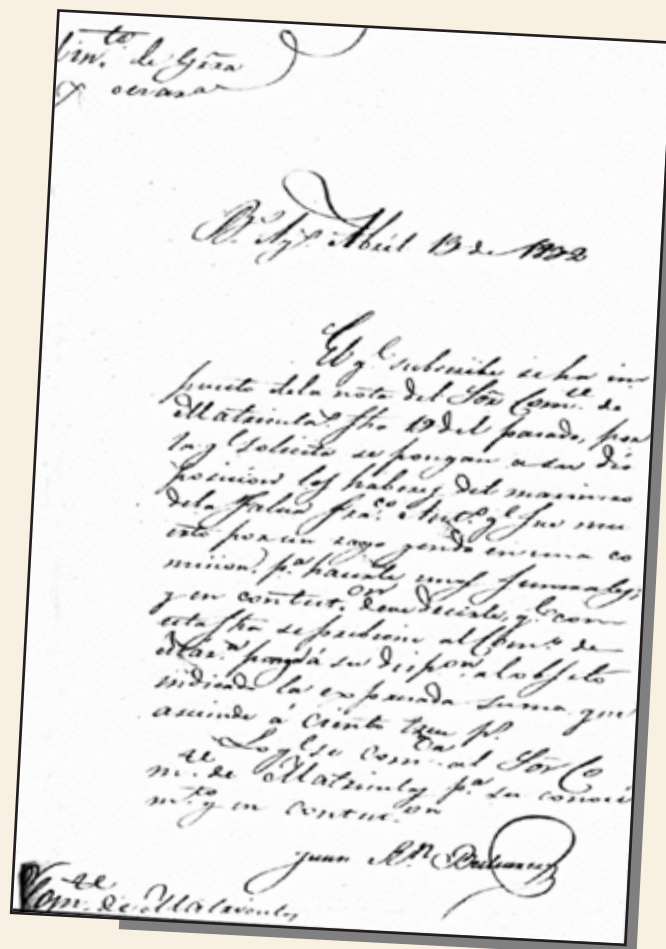 Min.to de Grra
y Marina
Bs. Ays. Abril 13 de 1832
El q.e subscribe se ha im
puesto de la nota del Sõr Com.te de
Matriculas fha 19 del pasado, por
la q.e solicita se pongan a su dis
posicion los haberes del marinero
de la Falua Fran.co q.e fue mu
erto por un rayo yendo en una co
mision, p.a hacerle unos funerales;
y en contest.on debe decirle, q.e con
esta fha se previene al Com.o de
Mar.a ponga á su dispon. al objeto
indicado la expresada suma que
asciende á ciento tres p.s
Lo q.e se com.ca al Sõr Co
m.te de Matriculas p.a su conoci
m.to y en contest.on
Juan R.n Balcarce
Com.te de Matriculas